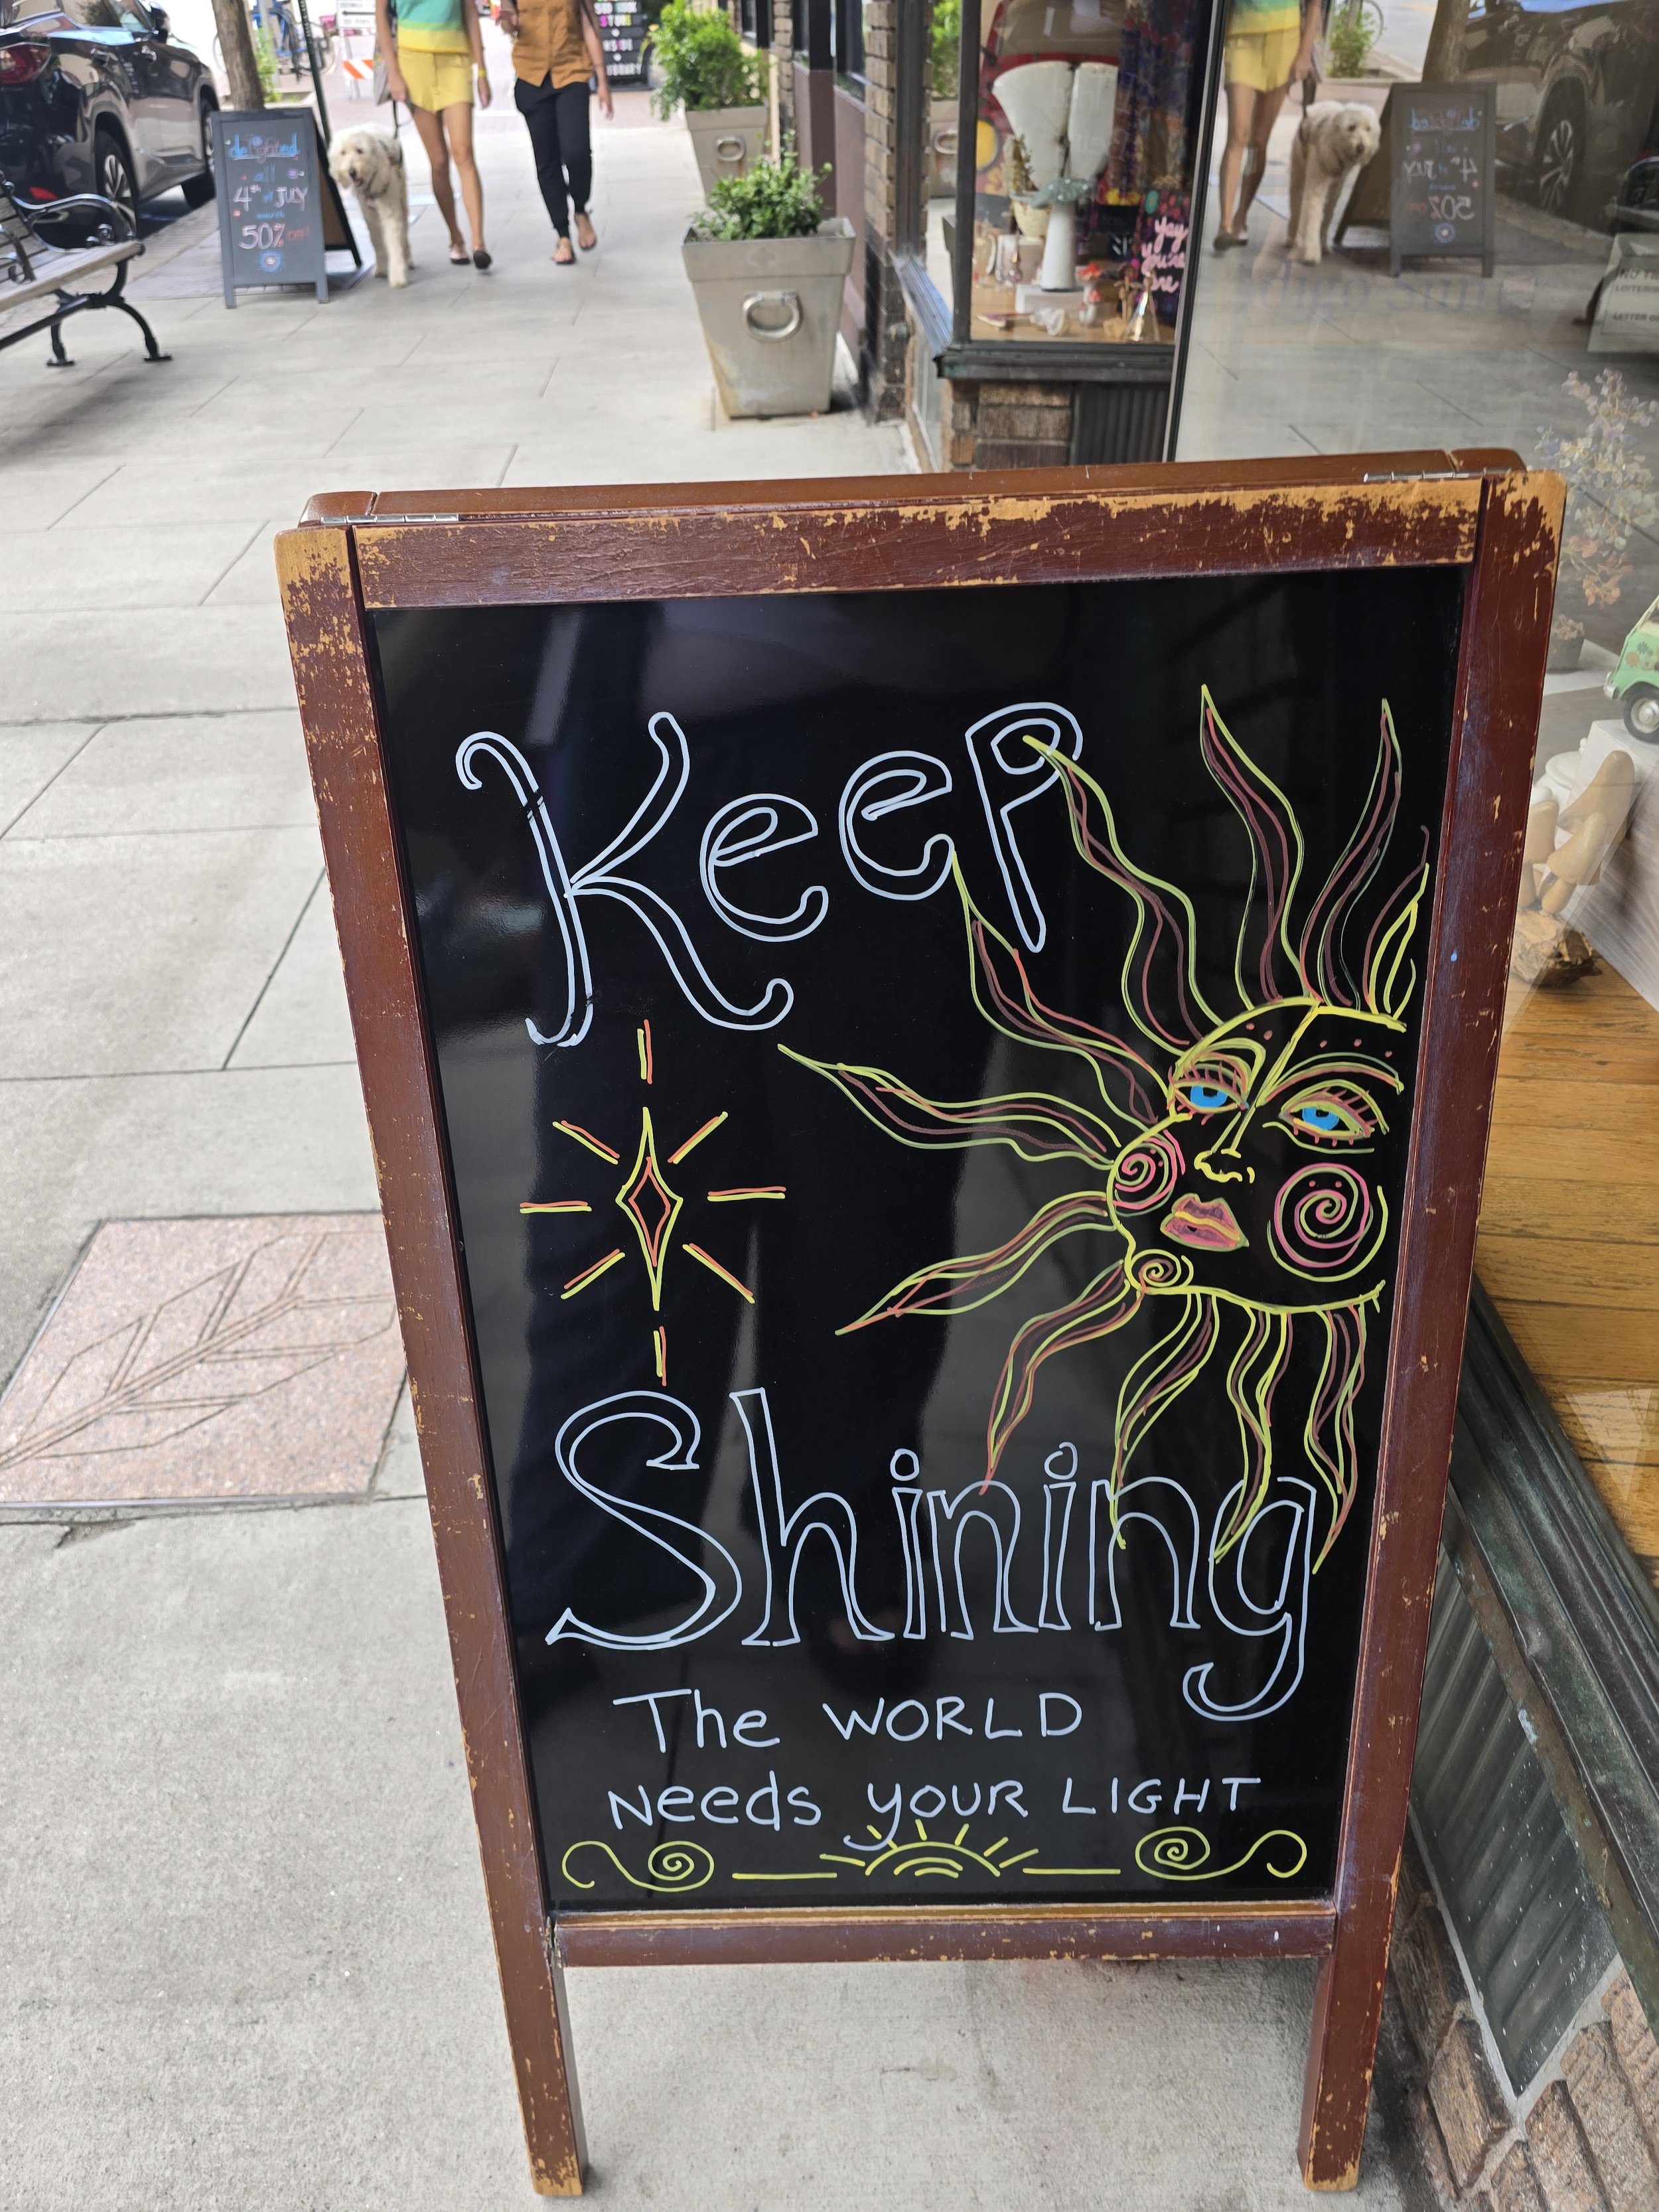 Keep
Shining
The WORLD
Needs YOUR LIGHT
delighted
all
4th of JULY
50% OFF!
STORE
INSIDE
yay
you're
here
LETTER O
LOITERING